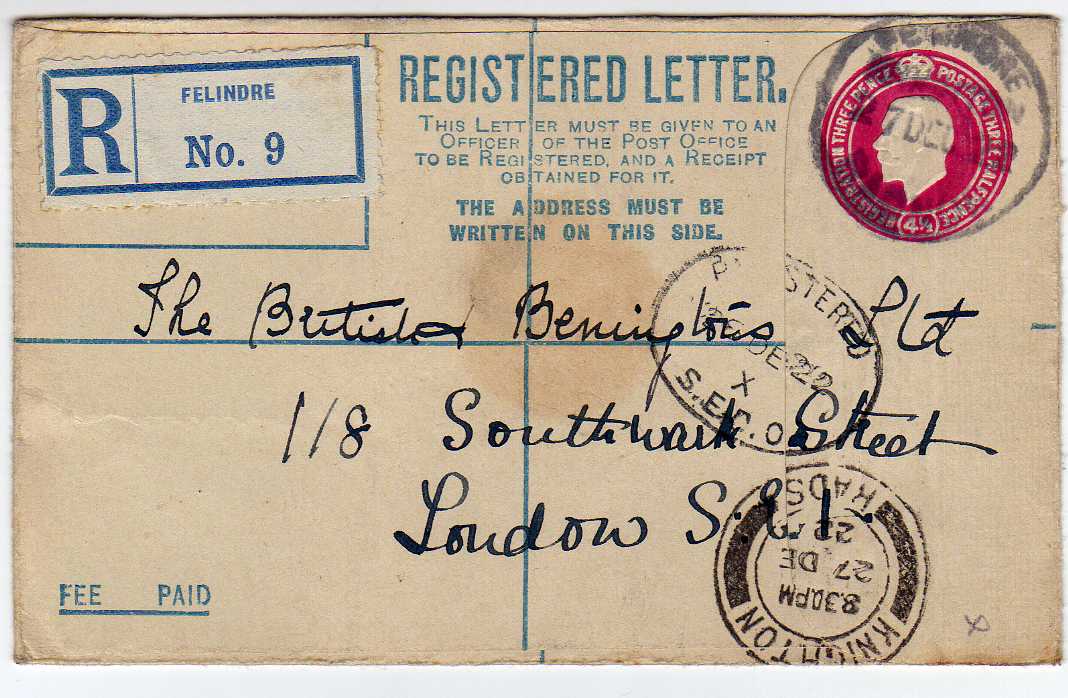 R FELINDRE
No. 9
REGISTERED LETTER.
THIS LETTER MUST BE GIVEN TO AN
OFFICER OF THE POST OFFICE
TO BE REGISTERED, AND A RECEIPT
OBTAINED FOR IT.
THE ADDRESS MUST BE
WRITTEN ON THIS SIDE.
REGISTRATION THREE PENCE POSTAGE THREE HALFPENCE
4½
7 DEC
REGISTERED
DE 22
X
S.E.D.O.
The British Benningtons Ltd
118 Southwark Street
London S.E.1.
FEE PAID
KNIGHTON
8.30PM
27 DE
22
RADS